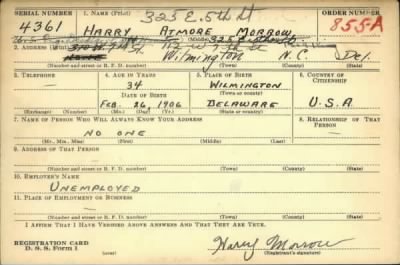 SERIAL NUMBER 1. NAME (Print) 325 E. 5th St ORDER NUMBER
4361 HARRY ATMORE MORROW 855-A
(First) (Middle) (Last)
2. ADDRESS (Print)
Wilmington N.C. Del.
(Number and street or R. F. D. number) (Town) (County) (State)
3. TELEPHONE 4. AGE IN YEARS 5. PLACE OF BIRTH 6. COUNTRY OF CITIZENSHIP
— 34 WILMINGTON
DATE OF BIRTH (Town or county)
FEB. 26, 1906 DELAWARE U.S.A
(Exchange) (Number) (Mo.) (Day) (Yr.) (State or country)
7. NAME OF PERSON WHO WILL ALWAYS KNOW YOUR ADDRESS 8. RELATIONSHIP OF THAT PERSON
NO ONE —
(Mr., Mrs., Miss) (First) (Middle) (Last)
9. ADDRESS OF THAT PERSON
—
(Number and street or R. F. D. number) (Town) (County) (State)
10. EMPLOYER'S NAME
UNEMPLOYED
11. PLACE OF EMPLOYMENT OR BUSINESS
—
(Number and street or R. F. D. number) (Town) (County) (State)
I AFFIRM THAT I HAVE VERIFIED ABOVE ANSWERS AND THAT THEY ARE TRUE.
REGISTRATION CARD
D. S. S. Form 1 Harry Morrow
(Registrant's signature)